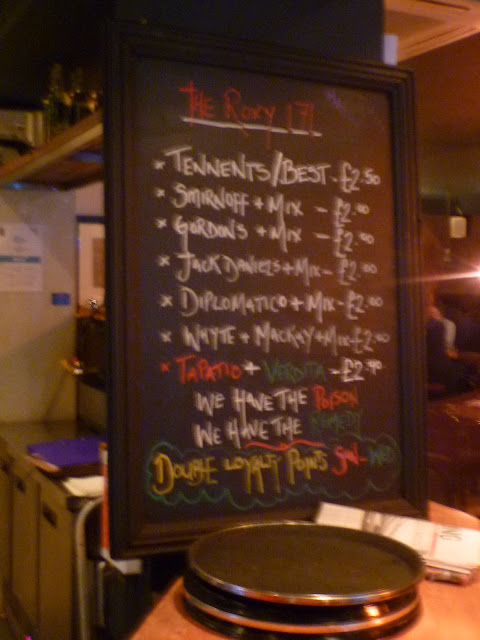 THE ROXY 171
* TENNENTS/BEST - £2.50
* SMIRNOFF + MIX - £2.00
* GORDONS + MIX - £2.00
* JACK DANIELS + MIX - £2.00
* DIPLOMATICO + MIX - £2.00
* WHYTE + MACKAY + MIX - £2.00
* TAPATIO + VERDITA - £2.90
WE HAVE THE POISON
WE HAVE THE REMEDY
DOUBLE LOYALTY POINTS SUN - WED